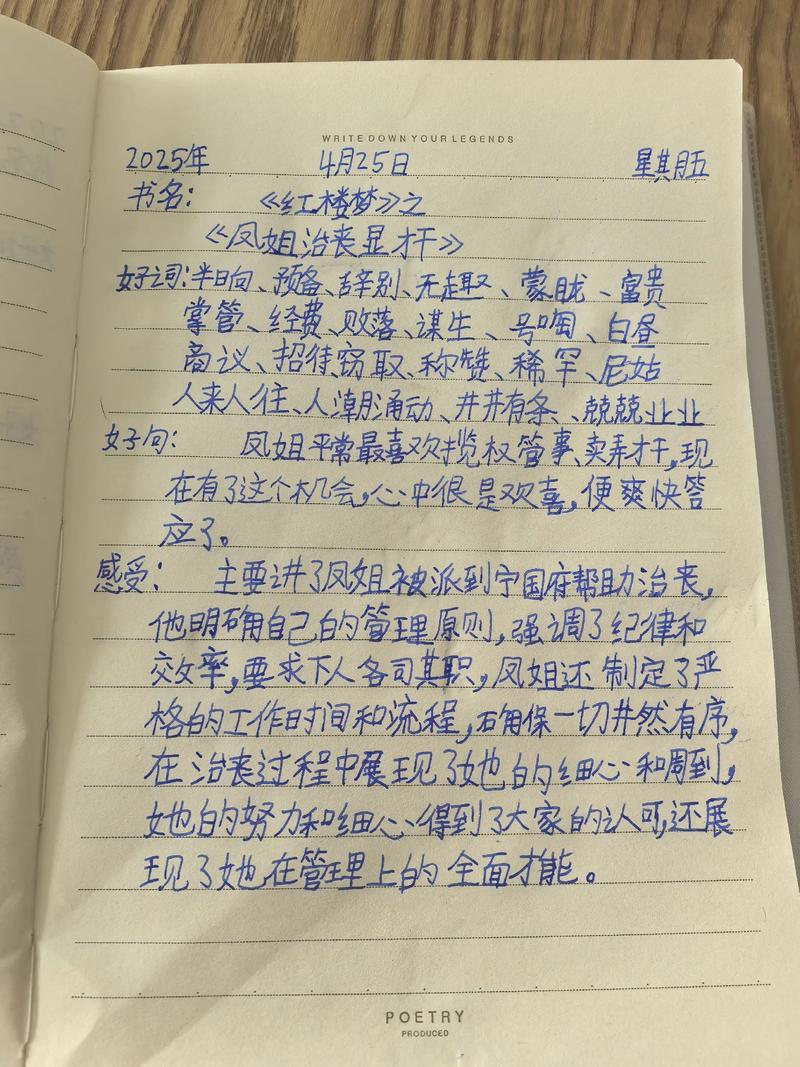 WRITE DOWN YOUR LEGENDS
2025年 4月25日 星期五
书名： 《红楼梦》之
《凤姐治丧显才干》
好词：半晌、预备、辞别、无趣、蒙眬、富贵
掌管、经费、败落、谋生、号啕、白昼
商议、招待窃取、称赞、稀罕、尼姑
人来人往、人潮涌动、井井有条、兢兢业业
好句： 凤姐平常最喜欢揽权管事、卖弄才干，现
在有了这个机会，心中很是欢喜，便爽快答
应了。
感受： 主要讲了凤姐被派到宁国府帮助治丧，
他明确自己的管理原则，强调了纪律和
效率，要求下人各司其职，凤姐还制定了严
格的工作时间和流程，确保一切井然有序，
在治丧过程中展现了她的细心和周到，
她的努力和细心得到了大家的认可，还展
现了她在管理上的全面才能。
POETRY
PRODUCED